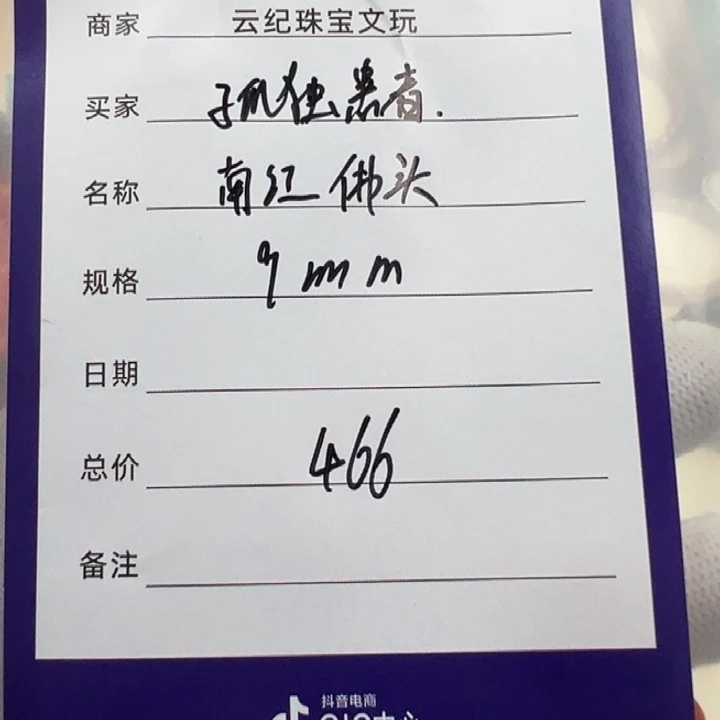 商家 云纪珠宝文玩
买家 孤独患者.
名称 南红佛头
规格 9mm
日期
总价 466
备注
抖音电商